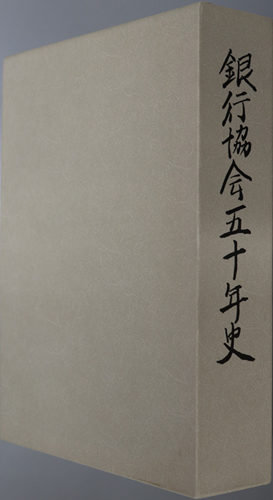 銀行協会五十年史